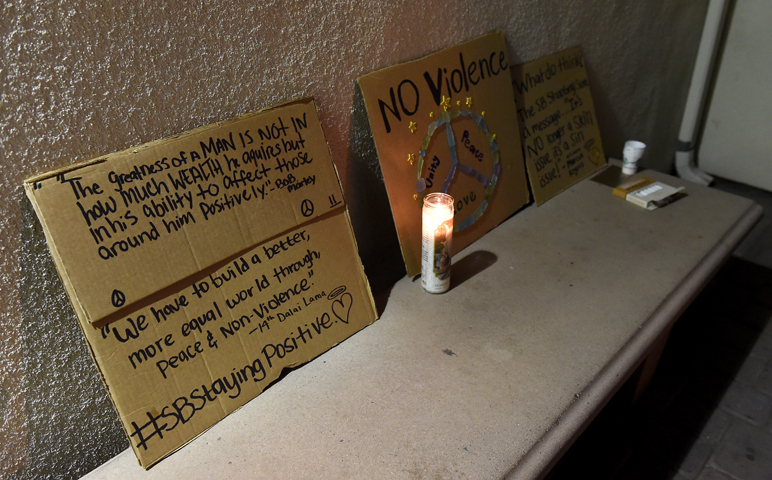 "The Greatness of A MAN IS NOT IN
how much WEALTH he aquires but
In his ability to affect those
around him Positively." -Bob
Marley
"We have to build a better,
more equal world through,
Peace & Non-Violence."
-14th Dalai Lama
#SBStayingPositive.
NO Violence
Unity
Peace
Love
What do think
The SB Shooting
a message? "It's
NO longer a Skin
issue its a Sin
issue!"